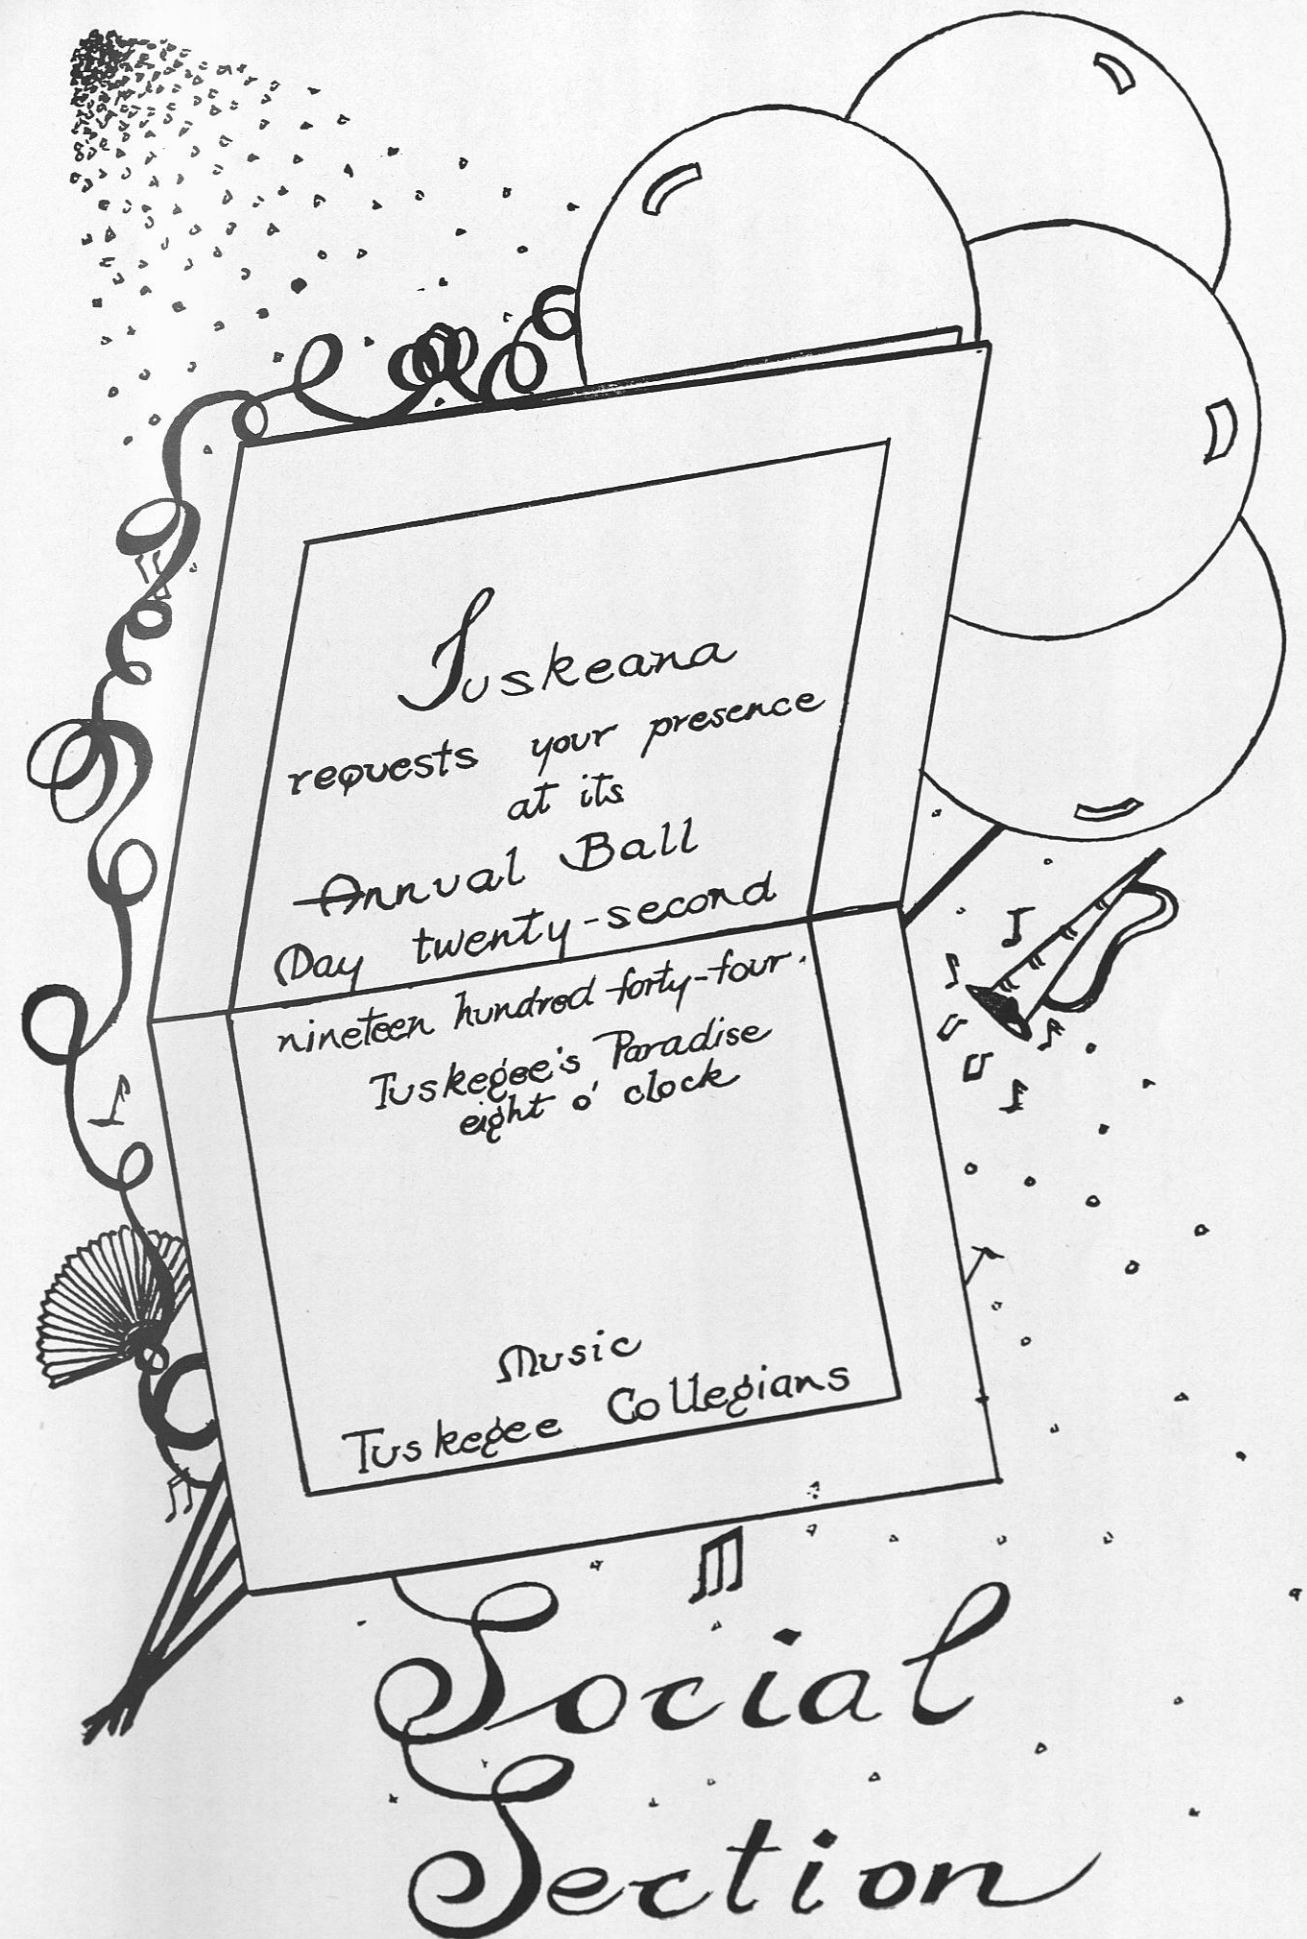 Tuskeana
requests your presence
at its
Annual Ball
Day twenty-second
nineteen hundred forty-four.
Tuskegee's Paradise
eight o' clock
Music
Tuskegee Collegians
Social
Section